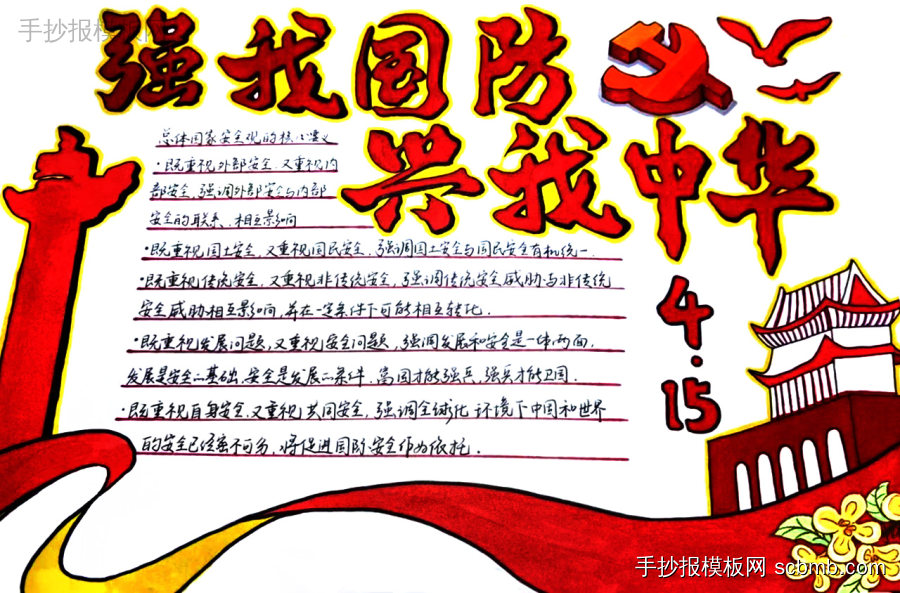 手抄报模板网
强我国防
兴我中华
总体国家安全观的核心要义
·既重视外部安全,又重视内
部安全,强调外部安全与内部
安全的联系、相互影响
·既重视国土安全,又重视国民安全,强调国土安全与国民安全有机统一.
·既重视传统安全,又重视非传统安全,强调传统安全威胁与非传统
安全威胁相互影响,并在一定条件下可能相互转化.
·既重视发展问题,又重视安全问题,强调发展和安全是一体两面,
发展是安全的基础,安全是发展的条件.富国才能强兵,强兵才能卫国.
·既重视自身安全,又重视共同安全,强调全球化环境下中国和世界
的安全已经密不可分,将促进国际安全作为依托.
4.15
手抄报模板网 scbmb.com